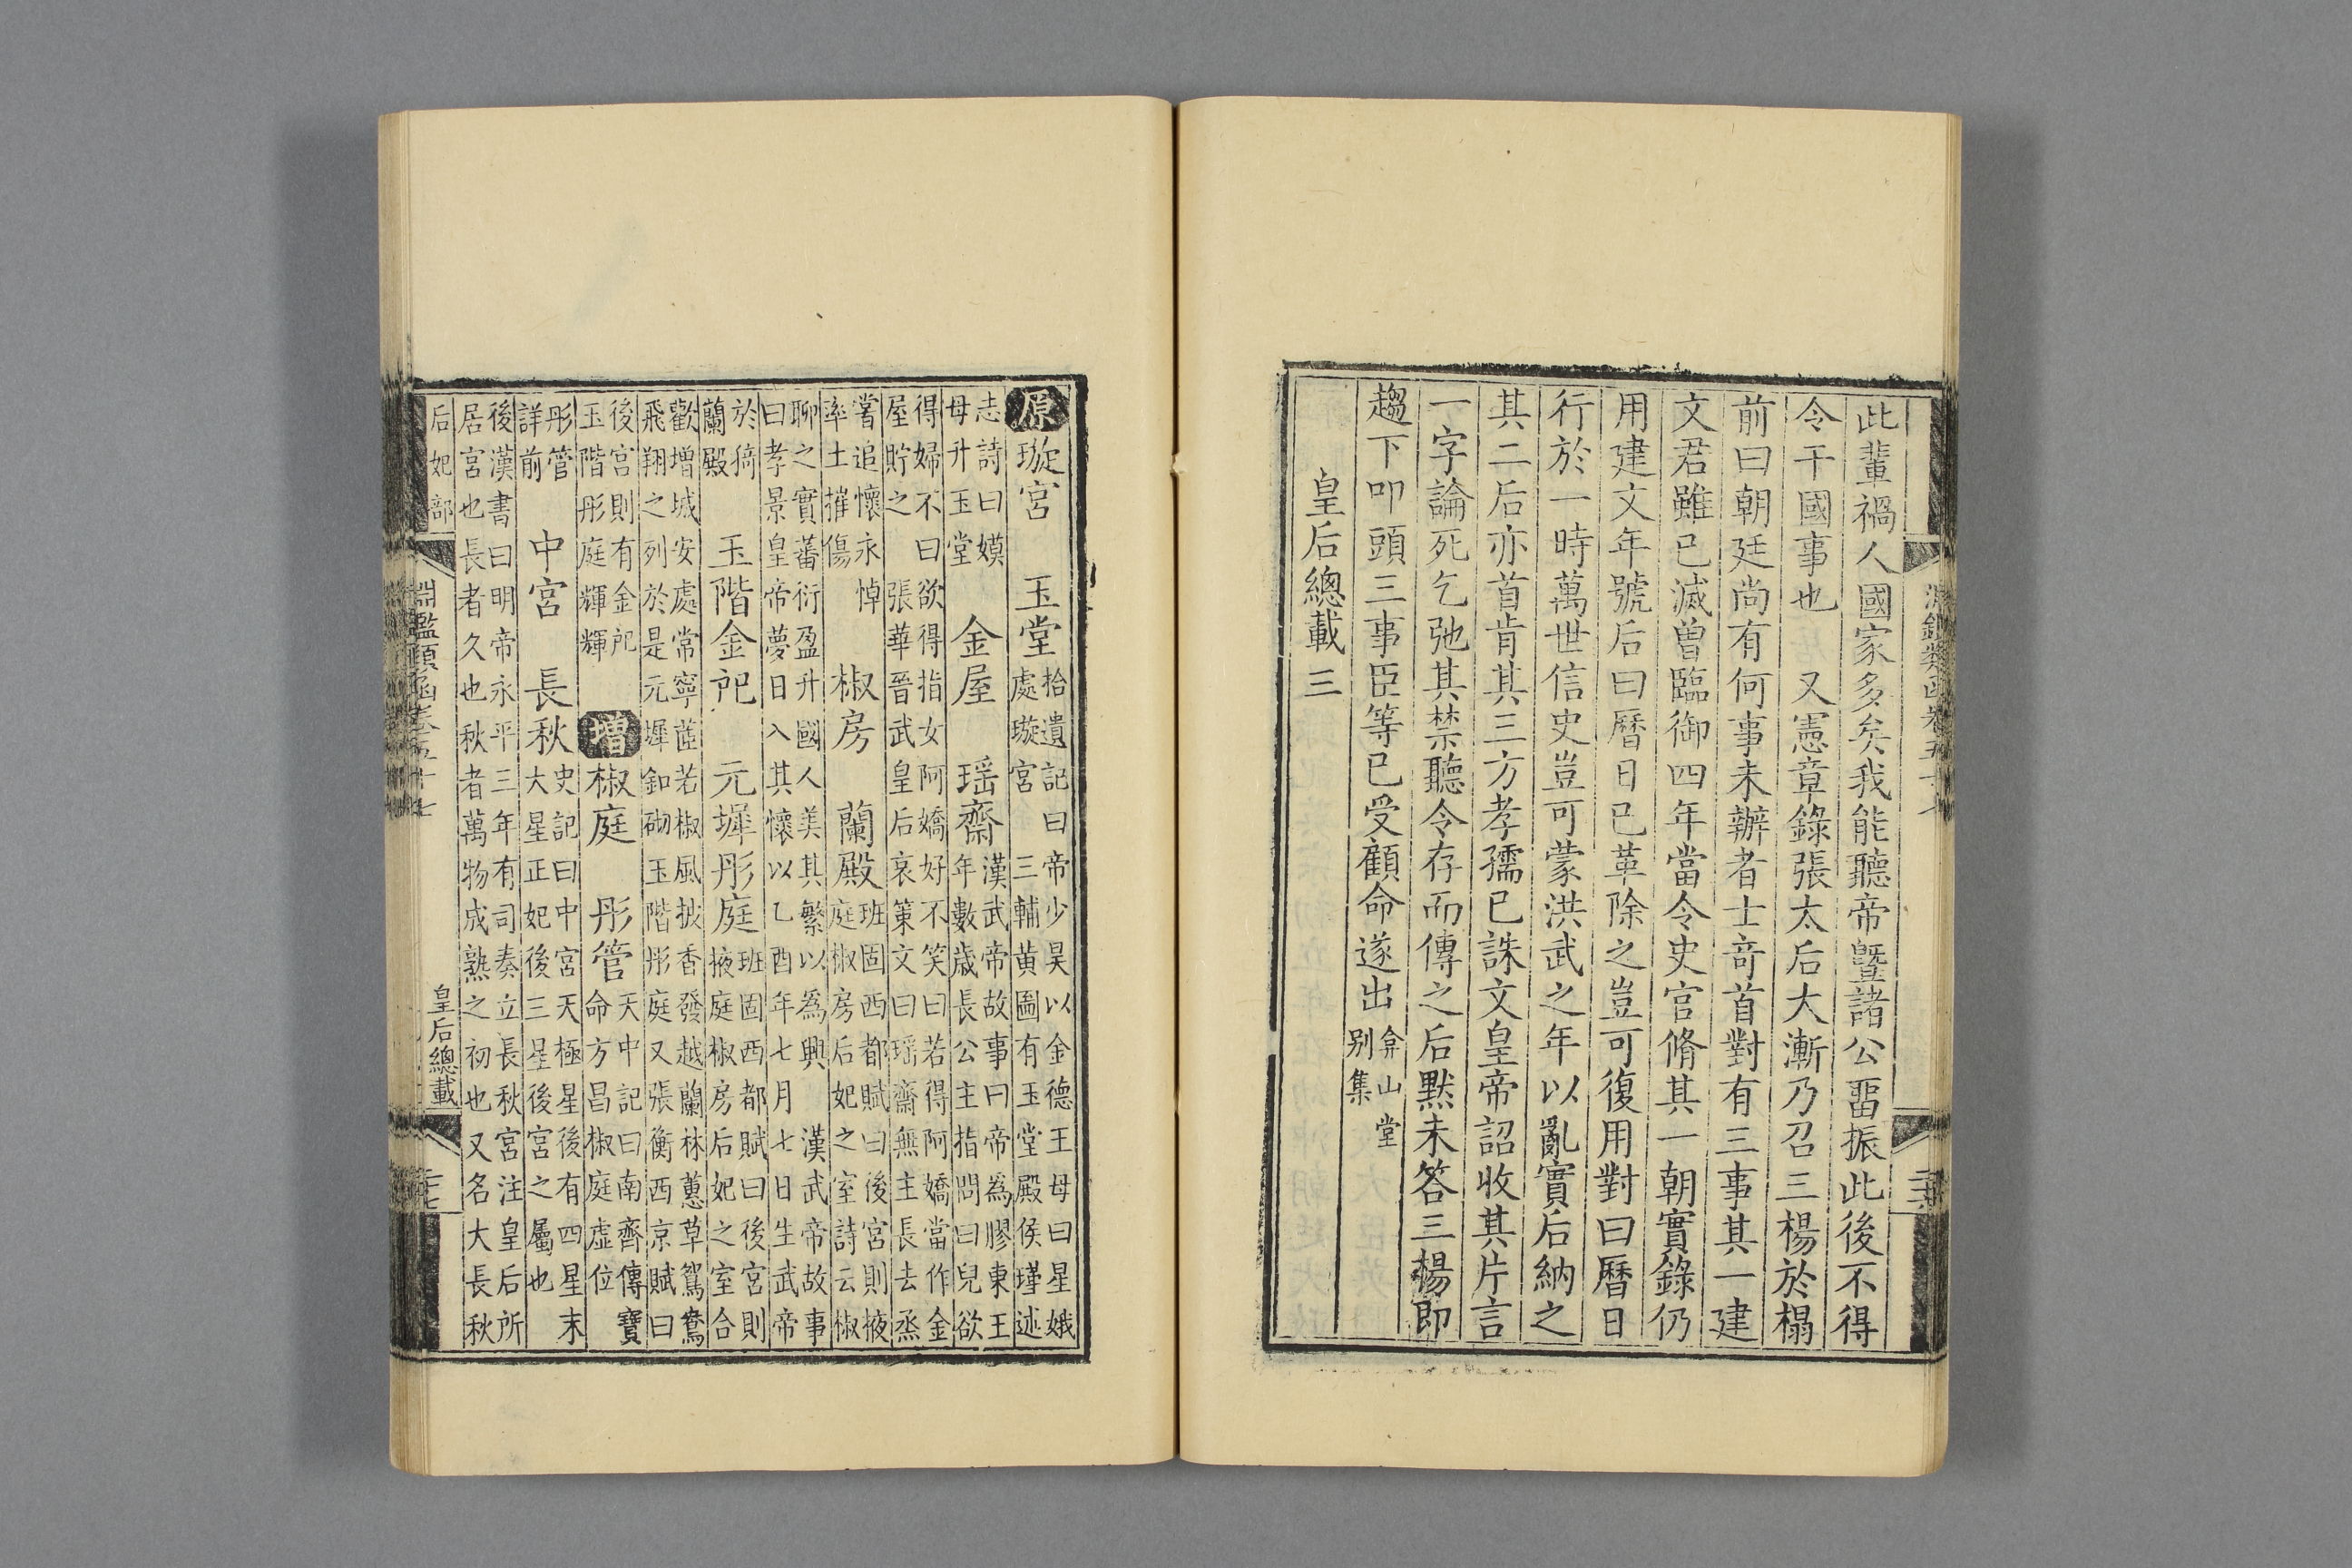 此輩禍人國家多矣我能聽帝曁諸公畱振此後不得
令干國事也　又憲章錄張太后大漸乃召三楊於榻
前曰朝廷尚有何事未辦者士竒首對有三事其一建
文君雖已滅曽臨御四年當令史官脩其一朝實錄仍
用建文年號后曰曆日已革除之豈可復用對曰曆日
行於一時萬世信史豈可蒙洪武之年以亂實后納之
其二后亦首肯其三方孝孺已誅文皇帝詔收其片言
一字論死乞弛其禁聽令存而傳之后默未答三楊即
趨下叩頭三事臣等已受顧命遂出弇山堂别集
皇后總載三
原璇宮　玉堂拾遺記曰帝少昊以金德王母曰星娥處璇宮　三輔黄圖有玉堂殿侯瑾述
志詩曰嫫母升玉堂　金屋　瑶齋漢武帝故事曰帝為膠東王年數歲長公主指問曰兒欲
得婦不曰欲得指女阿嬌好不笑曰若得阿嬌當作金屋貯之　張華晉武皇后哀策文曰瑶齋無主長去烝
嘗追懷永悼率土摧傷　椒房　蘭殿班固西都賦曰後宮則掖庭椒房后妃之室詩云椒
聊之實蕃衍盈升國人美其繁以為興　漢武帝故事曰孝景皇帝夢日入其懷以乙酉年七月七日生武帝
於猗蘭殿　玉階金戺　元墀彤庭班固西都賦曰後宮則掖庭椒房后妃之室合
歡增城安處常寧茝若椒風披香發越蘭林蕙草鴛鴦飛翔之列於是元墀釦砌玉階彤庭又張衡西京賦曰
後宮則有金戺玉階彤庭輝輝　增椒庭　彤管天中記曰南齊傳寶命方昌椒庭虚位
彤管詳前　中宮　長秋史記曰中宮天極星後有四星末大星正妃後三星後宮之屬也
後漢書曰明帝永平三年有司奏立長秋宮注皇后所居宮也長者久也秋者萬物成熟之初也又名大長秋
后妃部　淵鑑類函卷五十七　皇后總載